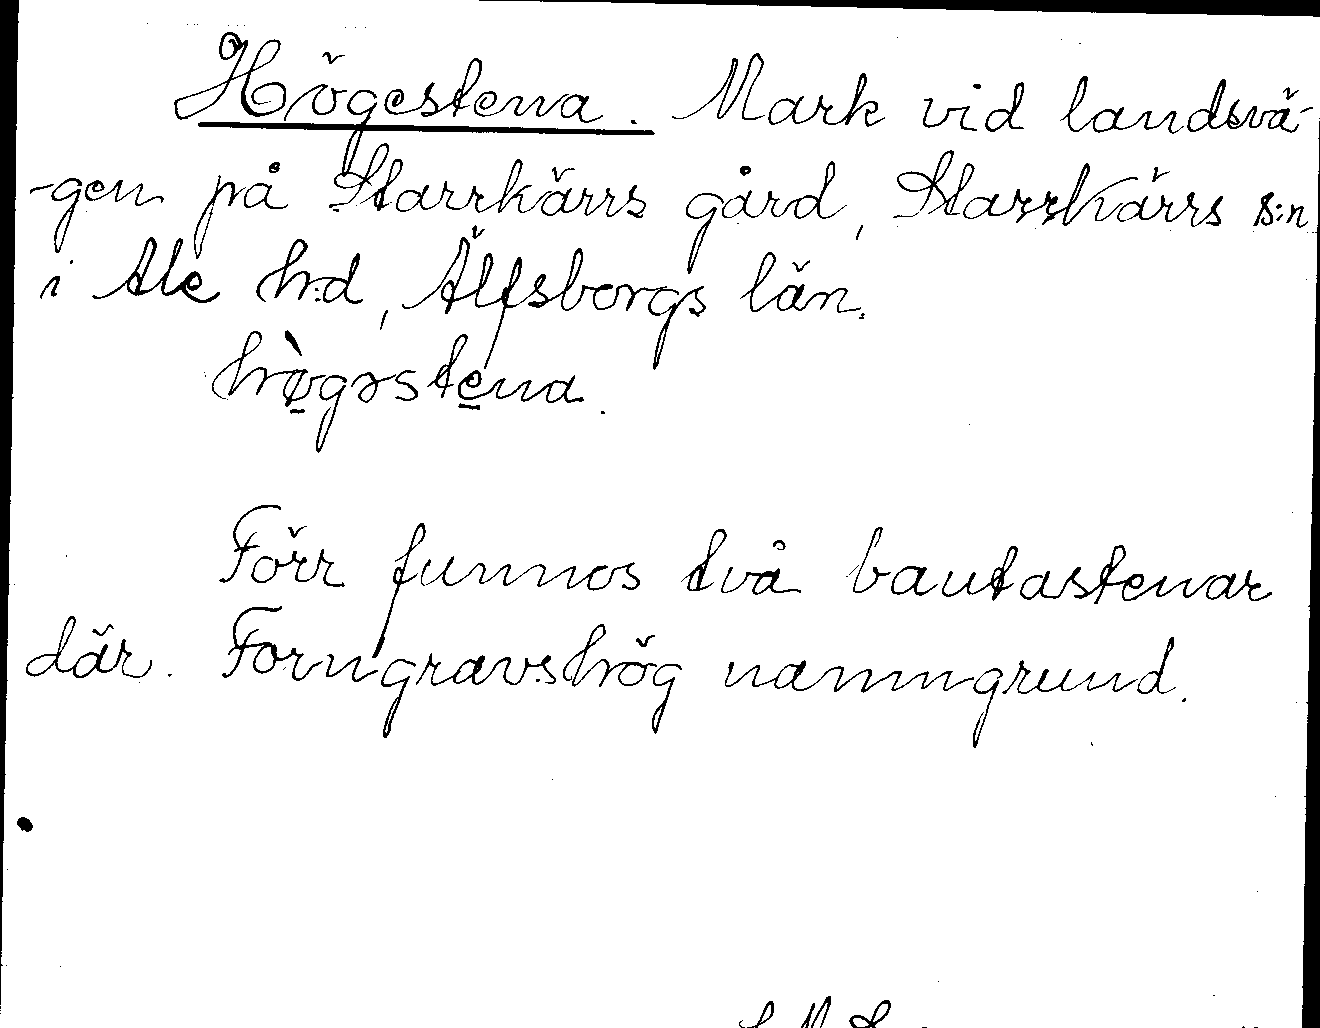 Högestena. Mark vid landsvä-
-gen på Starrkärrs gård, Starrkärrs s:n
i Ale h:d, Älfsborgs län.
hø̠̀gəste̠na.
Förr funnos två bautastenar
där. Forngravshög namngrund.